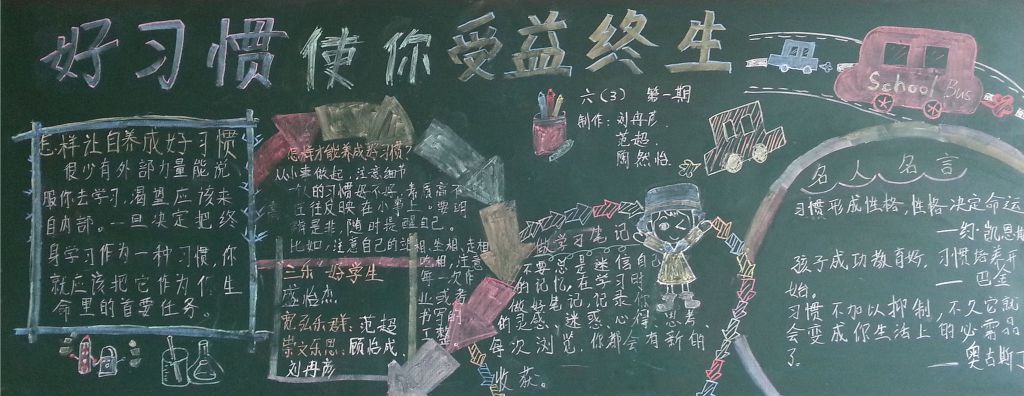 好习惯使你受益终生
六(3) 第一期
制作:刘冉彦.
范超.
陶然怡.
School Bus
怎样让自养成好习惯
很少有外部力量能说
服你去学习,渴望应该来
自内部。一旦决定把终
身学习作为一种习惯,你
就应该把它作为你生
命里的首要任务。
怎样才能养成好习惯?
从小事做起,注意细节
一个人的习惯好不好,素质高不
往往反映在小事上。要明
确是非,随时提醒自己。
比如,注意自己的站相,坐相,走相
吃相,注意
每一次作
业或者
书写的
工整
三乐好学生
盛怡杰
宽弘乐群:范超
崇文乐思:顾怡成、
刘冉彦
做学习笔记
不要总是迷信自己
的记忆,在学习时
做好笔记,记录你
的灵感、迷惑、心得、思考、
每次浏览,你都会有新的
收获。
名人名言
习惯形成性格,性格决定命运
—约·凯恩斯
孩子成功教育好,习惯培养开
始。 —巴金
习惯不加以抑制,不久它就
会变成你生活上的必需品
了。 —奥古斯丁